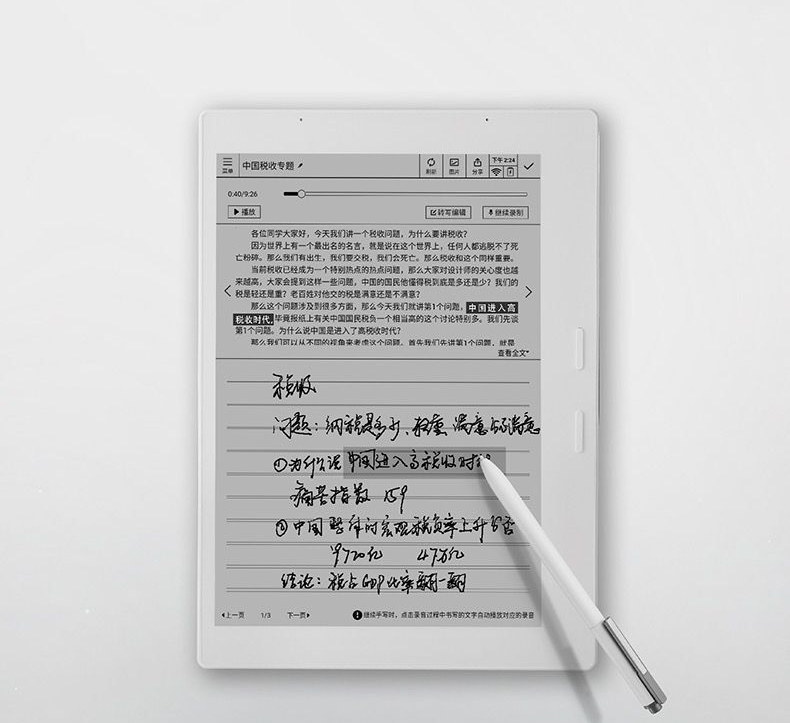 菜单 中国税收专题 刷新 图片 分享 下午 2:24
0:40/9:26
播放 转写编辑 继续录制
各位同学大家好，今天我们讲一个税收问题，为什么要讲税收？
因为世界上有一个最出名的名言，就是说在这个世界上，任何人都逃脱不了死
亡粉碎。那么我们有出生，我们要交税，我们会死亡。那么税收和这个同样重要。
当前税收已经成为一个特别热点的热点问题，那么大家对设计师的关心度也越
来越高，大家会提到这样一些问题，中国的国民他懂得税到底是多还是少？我们的
税是轻还是重？老百姓对他交的税是满意还是不满意？
那么这个问题涉及到很多方面，那么今天我们就讲第1个问题，中国进入高
税收时代,毕竟报纸上有关中国国民税负一个相当高的这个讨论特别多。我们先谈
第1个问题。为什么说中国是进入了高税收时代？
那么我们可以从不同的视角来考虑这个问题，首先我们先讲第1个问题，就是
查看全文
税收
问题：纳税是多少、轻重、满意与不满意
①为什么说 中国进入高税收时代
痛苦指数 159
②中国整体的宏观税负率上升与否
9720亿 47.6亿
结论：税占GDP比率翻一翻
上一页 1/3 下一页 继续手写时，点击录音过程中书写的文字自动播放对应的录音